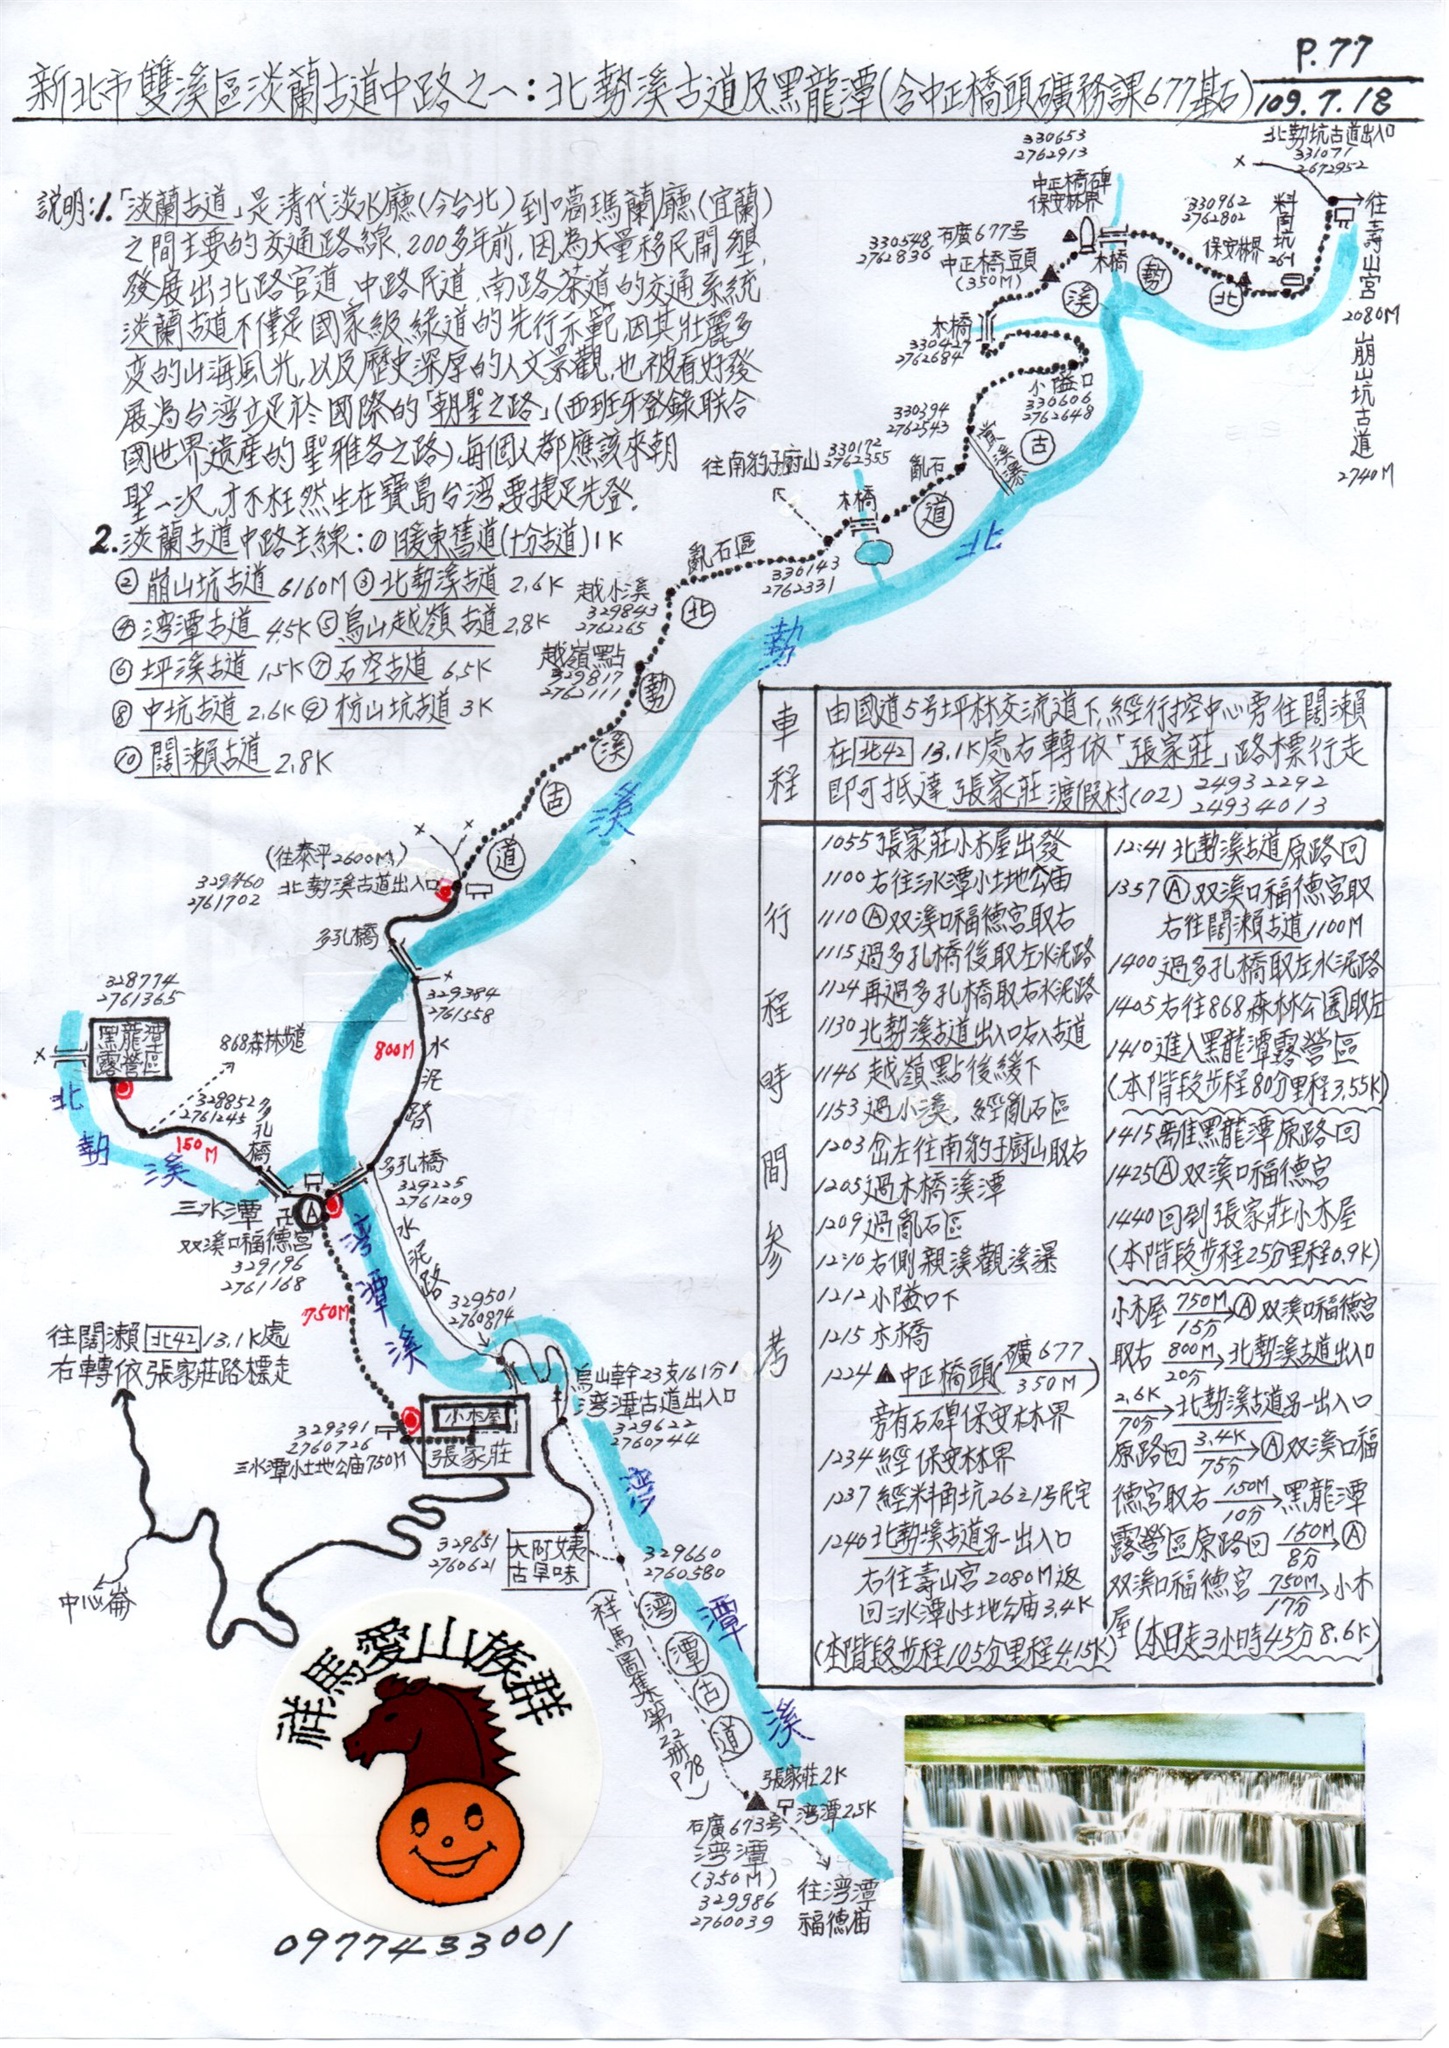 P.77
新北市雙溪區淡蘭古道中路之一：北勢溪古道及黑龍潭(含中正橋頭礦務課677基石)
109.7.18
說明：1.「淡蘭古道」是清代淡水廳(今台北)到噶瑪蘭廳(宜蘭)
之間主要的交通路線,200多年前,因為大量移民開墾,
發展出北路官道,中路民道,南路茶道的交通系統
淡蘭古道不僅是國家級綠道的先行示範,因其壯麗多
變的山海風光,以及歷史深厚的人文景觀,也被看好發
展為台湾立足於國際的「朝聖之路」(西班牙登錄联合
國世界遺產的聖雅各之路),每個人都應該來朝
聖一次,才不枉然生在寶島台湾,要捷足先登.
2.淡蘭古道中路主線：①暖東舊道(十分古道)1K
②崩山坑古道6160M③北勢溪古道2.6K
④湾潭古道4.5K⑤烏山越嶺古道2.8K
⑥坪溪古道1.5K⑦石空古道6.5K
⑧中坑古道2.6K⑨枋山坑古道3K
⑩闊瀨古道2.8K
北勢坑古道出入口
331071
2672952
往壽山宮2080M
崩山坑古道2740M
330962
2762802
保安林界
料角坑
26-1
330653
2762913
中正橋碑
保安林界
木橋
330548
2762836
石廣677号
中正橋頭
(350M)
木橋
330427
2762684
小隘口
330606
2762648
330394
2762543
亂石
賞溪瀑
330172
2762355
往南豹子廚山
木橋
330143
2762331
亂石區
越小溪
329843
2762265
越嶺點
329817
2762111
北勢溪古道
北勢溪古道
北勢溪
(往泰平2600M)
329460
2761702
北勢溪古道出入口
多孔橋
329384
2761558
800M
水泥路
328774
2761365
黑龍潭
露營區
868森林步道
328852
2761245
150M
多孔橋
北勢溪
多孔橋
329225
2761209
水泥路
三水潭
A
双溪口福德宮
329196
2761168
湾潭溪
750M
329501
2760874
往闊瀨北42 13.1K處
右轉依張家莊路標走
烏山幹23支161分1
湾潭古道出入口
329622
2760744
小木屋
張家莊
329391
2760726
三水潭小土地公庙750M
329651
2760621
大阿姨
古早味
329660
2760580
中心崙
湾潭古道
(祥馬圖集第22册P78)
湾潭溪
張家莊2K
湾潭2.5K
石廣673号
湾潭
(350M)
329986
2760039
往湾潭
福德庙
車程
由國道5号坪林交流道下,經行控中心旁往闊瀨
在北42 13.1K處右轉依「張家莊」路標行走
即可抵達張家莊渡假村(02) 24932292
24934013
行程時間參考
1055張家莊小木屋出發
1100右往三水潭小土地公庙
1110Ⓐ双溪口福德宮取右
1115過多孔橋後取左水泥路
1124再過多孔橋取右水泥路
1130北勢溪古道出入口右入古道
1146越嶺點後緩下
1153過小溪,經亂石區
1203岔左往南豹子廚山取右
1205過木橋溪潭
1209過亂石區
12:10右側親溪觀溪瀑
1212小隘口下
1215木橋
1224▲中正橋頭(礦677 350M)
旁有石碑保安林界
1234經保安林界
1237經料角坑2621号民宅
1240北勢溪古道另一出入口
右往壽山宮2080M返
回三水潭小土地公庙3.4K
(本階段步程105分里程4.15K)
12:41北勢溪古道原路回
1357Ⓐ双溪口福德宮取
右往闊瀨古道1100M
1400過多孔橋取左水泥路
1405右往868森林公園取左
1410進入黑龍潭露營區
(本階段步程80分里程3.55K)
1415離開黑龍潭原路回
1425Ⓐ双溪口福德宮
1440回到張家莊小木屋
(本階段步程25分里程0.9K)
小木屋 750M 15分→Ⓐ双溪口福德宮
取右 800M 20分→北勢溪古道出入口
2.6K 70分→北勢溪古道另一出入口
原路回 3.4K 75分→Ⓐ双溪口福
德宮取右 150M 10分→黑龍潭
露營區原路回 150M 8分→Ⓐ
双溪口福德宮 750M 17分→小木
屋(本日走3小時45分8.6K)
祥馬愛山族群
0977433001